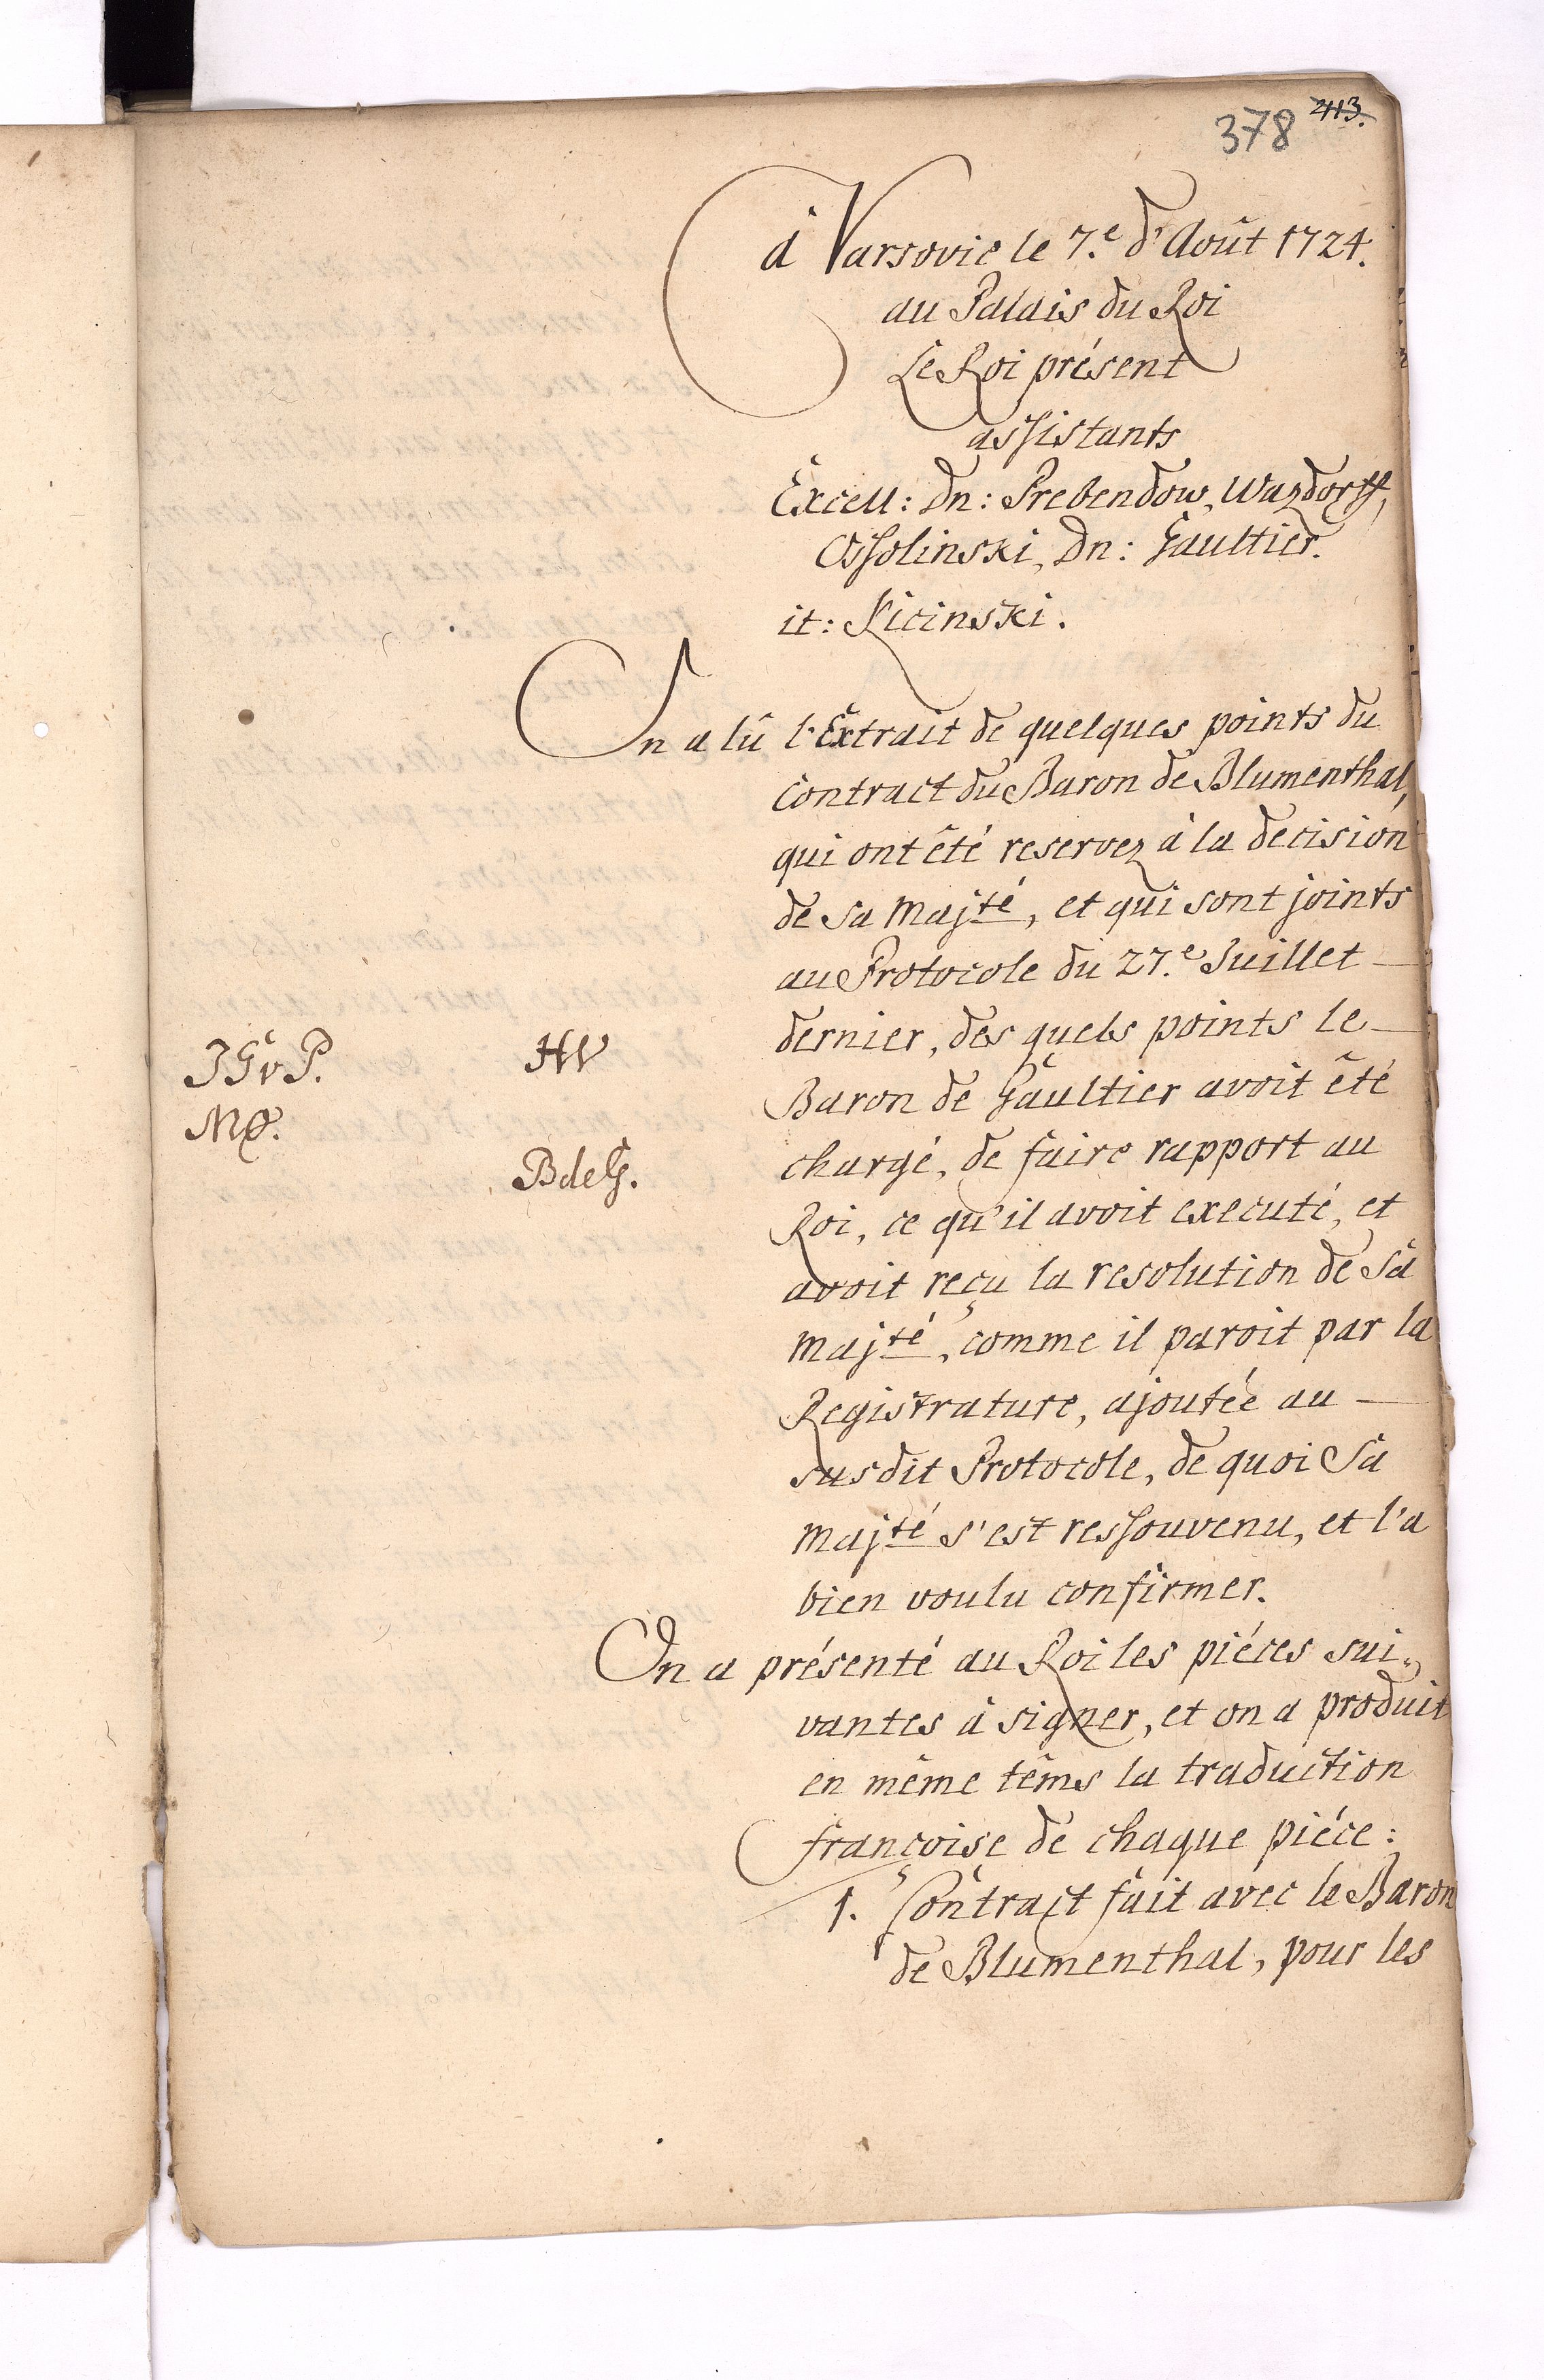 378 413.
à Varsovie le 7.e d'Août 1724.
au Palais du Roi
Le Roi présent
assistants
Excell: Dn: Prebendow, Wazdorff,
Ossolinski, Dn: Gaultier.
it: Kicinski.
On a lû l'Extrait de quelques points du
Contract du Baron de Blumenthal,
qui ont êté reservez à la decision
de Sa Majté, et qui sont joints
au Protocole du 27.e Juillet
dernier, des quels points le
Baron de Gaultier avoit êté
chargé, de faire rapport au
Roi, ce qu'il avoit executé, et
avoit reçu la resolution de Sa
Majté, comme il paroit par la
Registrature, ajoutée au
susdit Protocole, de quoi Sa
Majté s'est ressouvenu, et l'a
bien voulu confirmer.
On a présenté au Roi les piéces sui-
vantes à signer, et on a produit
en même têms la traduction
françoise de chaque piéce:
1. Contract fait avec le Baron
de Blumenthal, pour les
JGvP.
HW
MO.
BdeG.